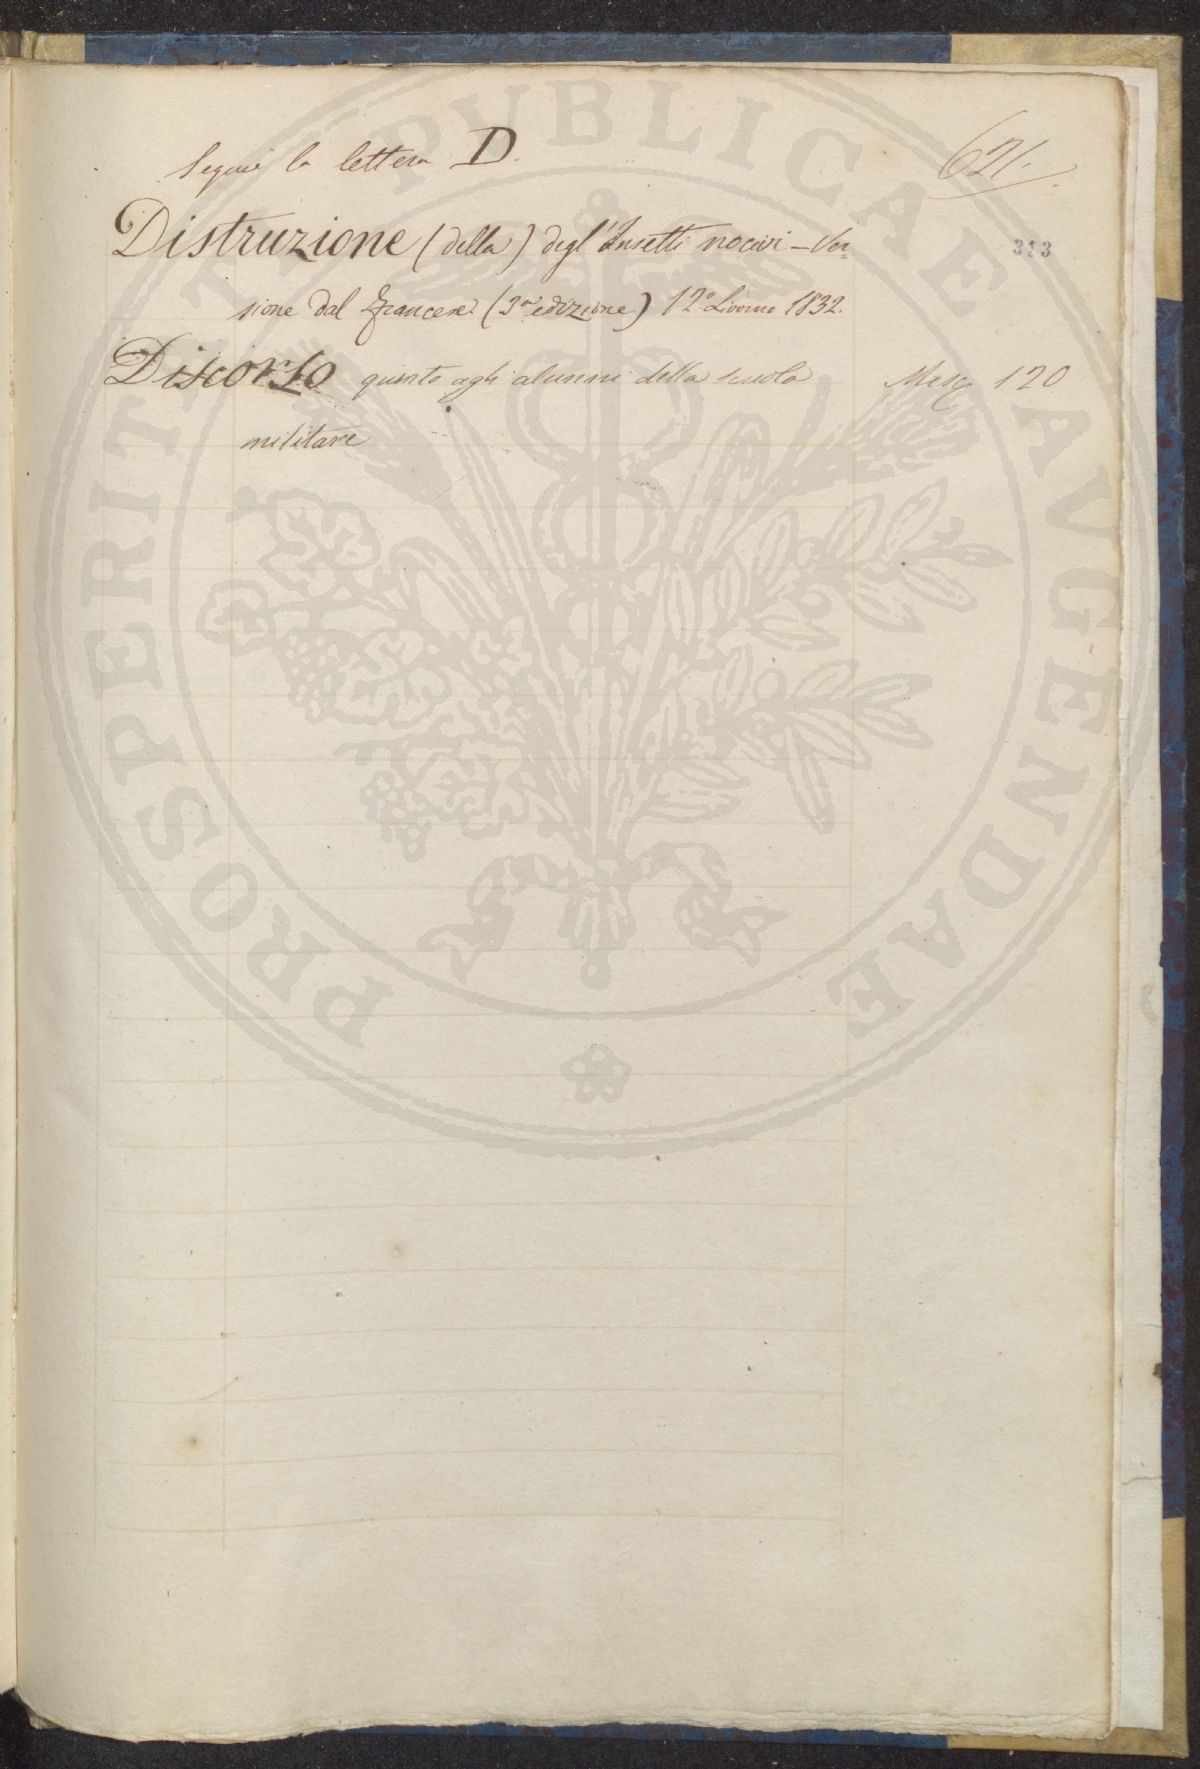 Segue la lettera D.
621.
Distruzione (della) degl'Insetti nocivi – Ver=
313
sione dal Francese (3ª edizione) 12° Livorno 1832.
Discorso quinto agli alunni della scuola Misc 120
militare
PROSPERITATI PVBLICAE AVGENDAE